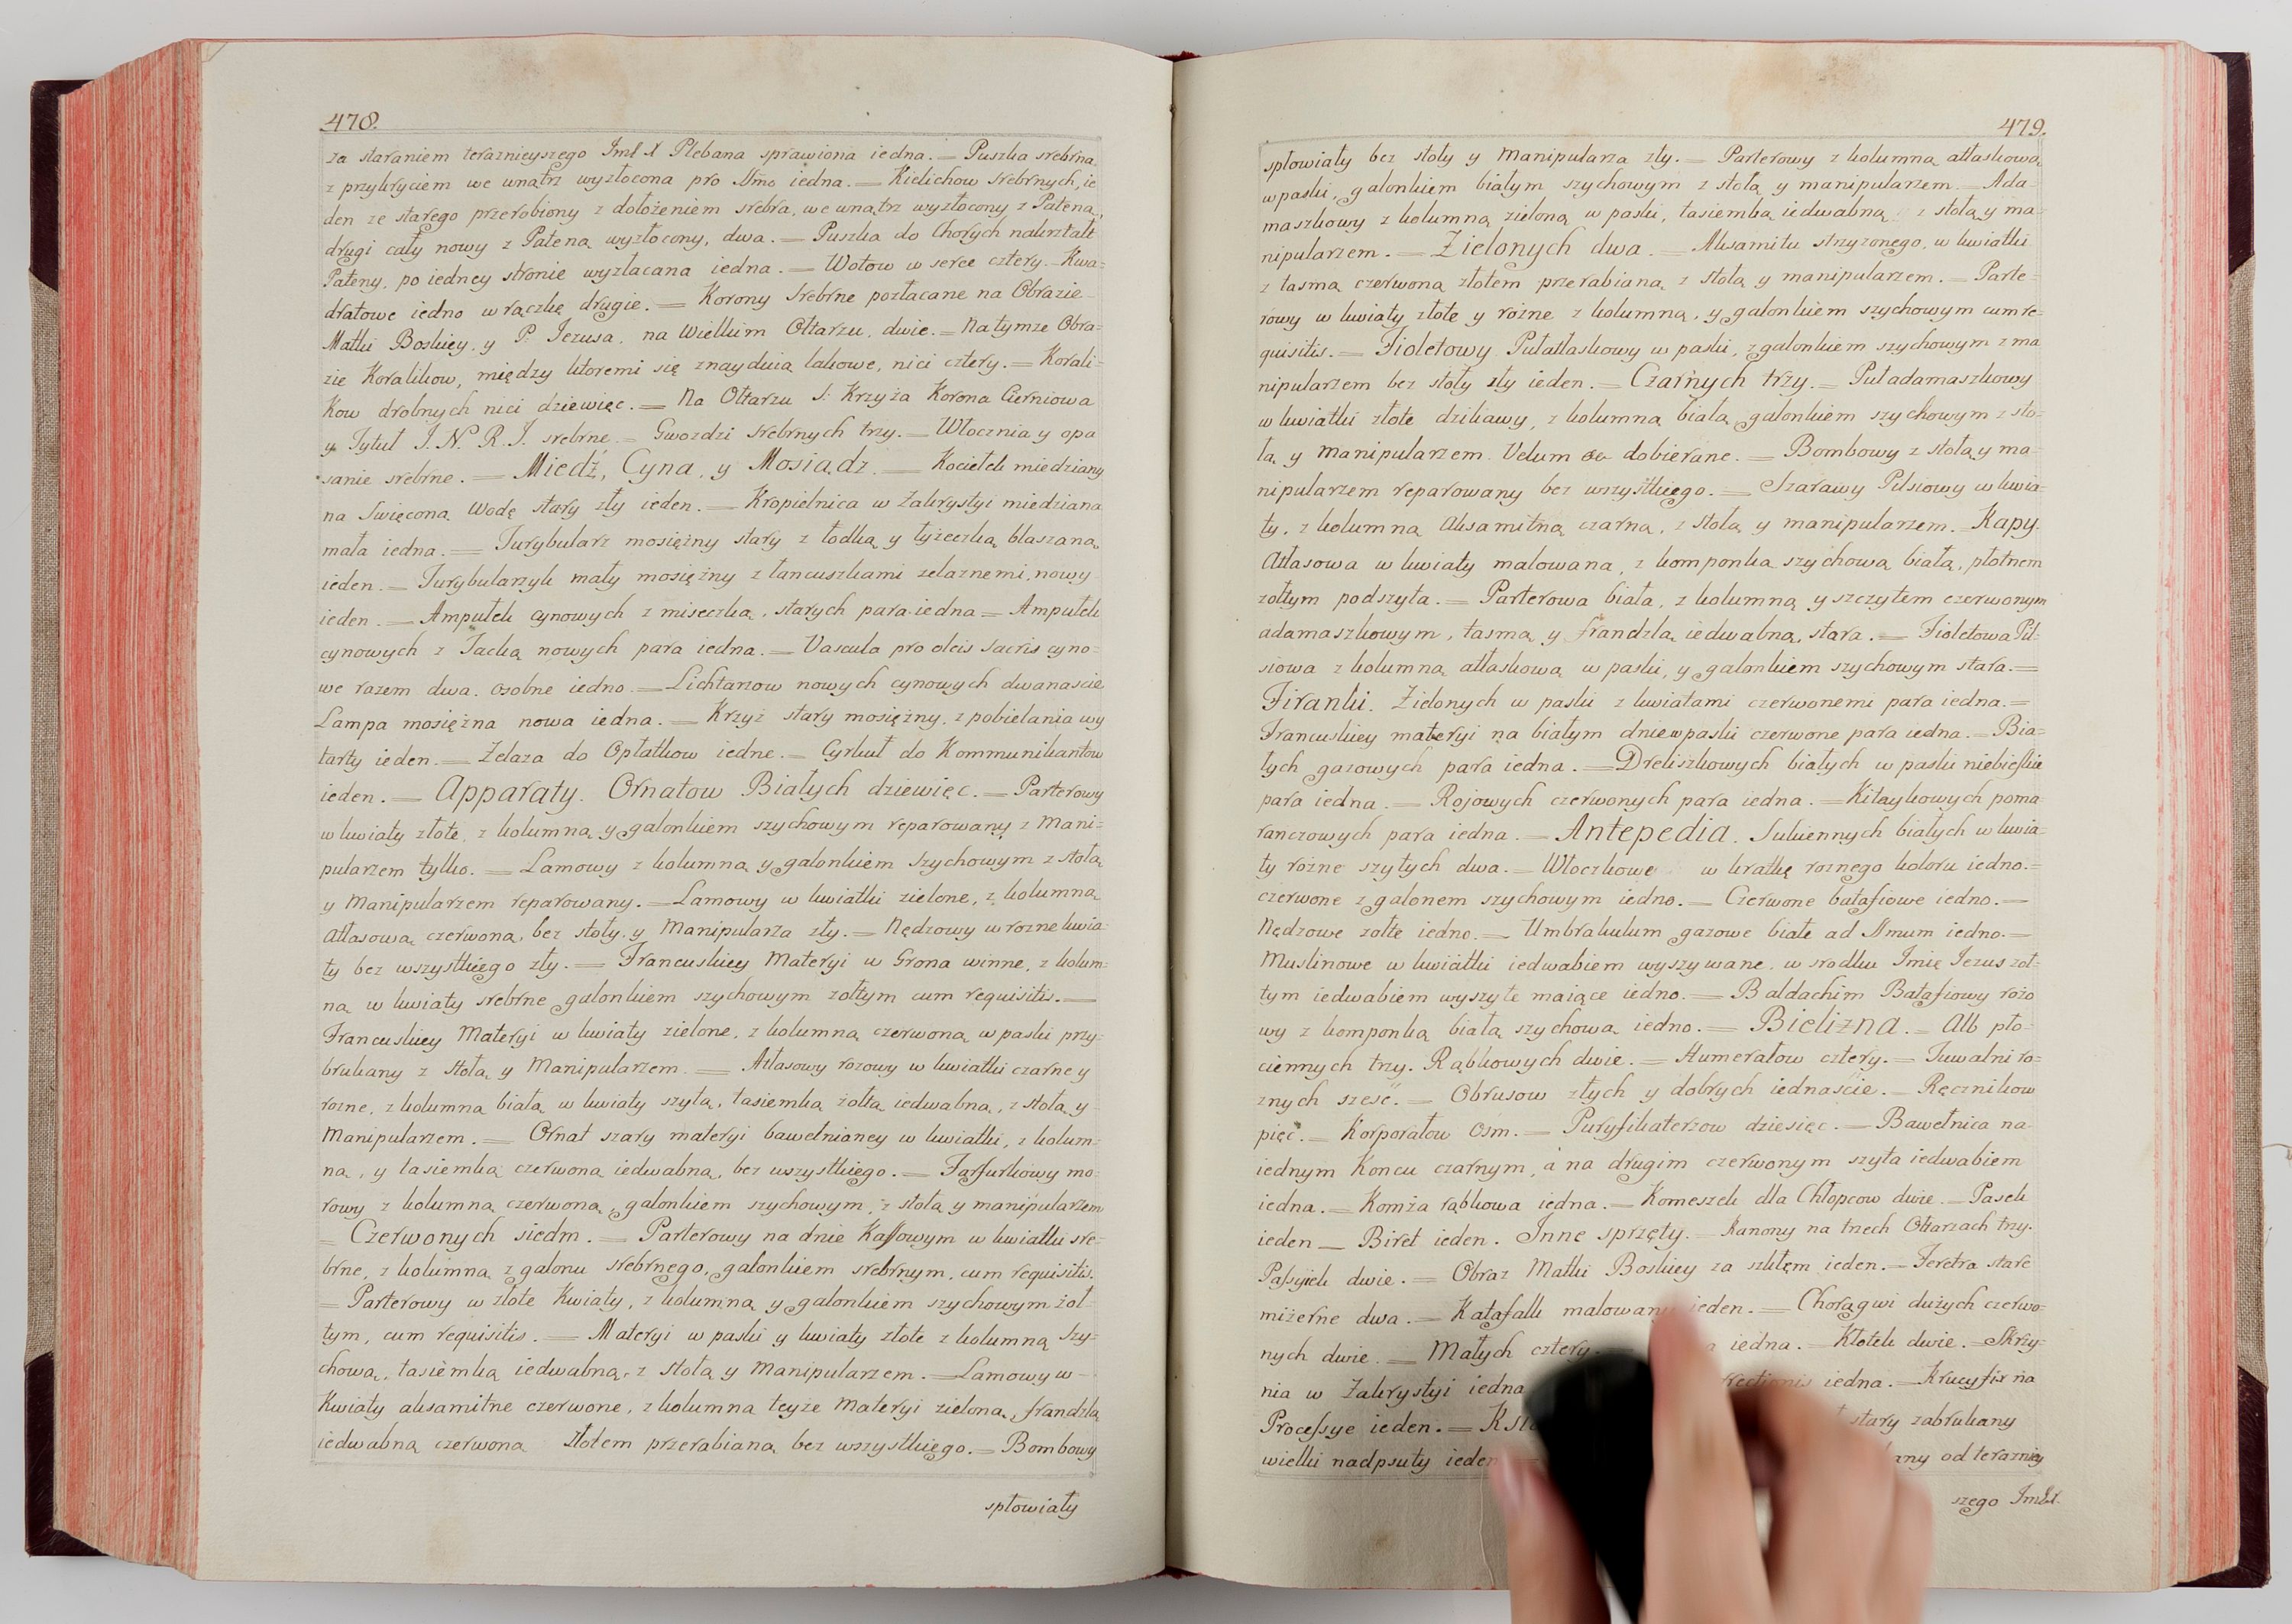 478.
za staraniem teraznieyszego Jmć X Plebana sprawiona iedna. — Puszka srebrna
z przykryciem we wnątrz wyzłocona pro Ssmo iedna. — Kielichow srebrnych, ie
den ze starego przerobiony z dołożeniem srebra, we wnątrz wyzłocony z Pateną,
drugi cały nowy z Pateną wyzłocony, dwa. — Puszka do Chorych nakształt
Pateny, po iedney stronie wyzłacana iedna. — Wotow w serce cztery. Kwa=
dratowe iedno w rączkę drugie. — Korony srebrne pozłacane na Obrazie
Matki Boskiey, y P. Jezusa, na Wielkim Ołtarzu, dwie. — Na tymże Obra=
zie Koralikow, między ktoremi się znayduią lakowe, nici cztery. — Korali=
Kow drobnych nici dziewięć. — Na Ołtarzu S: Krzyża Korona Cierniowa
y Tytuł J. N. R. J. srebrne. — Gwozdzi srebrnych trzy. — Włocznia y opa
sanie srebrne. — Miedź, Cyna, y Mosiądz. — Kociełek miedziany
na Swięconą Wodę stary zły ieden. — Kropielnica w Zakrystyi miedziana
mała iedna. — Turybularz mosiężny stary z łodką y łyżeczką blaszaną,
ieden. — Turybularzyk mały mosiężny z łancuszkami żelaznemi, nowy
ieden. — Ampułek cynowych z miseczką, starych para iedna — Ampułek
cynowych z Tacką nowych para iedna. — Vascula pro oleis sacris cyno=
we razem dwa. osobne iedno. — Lichtarzow nowych cynowych dwanascie
Lampa mosiężna nowa iedna. — Krzyż stary mosiężny, z pobielania wy
tarty ieden. — Zelaza do Opłatkow iedne. — Cyrkuł do Kommunikantow
ieden. — Apparaty. Ornatow Białych dziewięć. — Parterowy
w kwiaty złote, z kolumną y galonkiem szychowym reparowany z Mani=
pularzem tylko. — Lamowy z kolumną y galonkiem szychowym z stołą
y Manipularzem reparowany. — Lamowy w kwiatki zielone, z kolumną
Atłasową czerwoną, bez stoły y Manipularza zły. — Nędzowy w rożne kwia=
ty bez wszystkiego zły. — Francuskiey Materyi w Grona winne, z kolum=
ną w kwiaty srebrne galonkiem szychowym żołtym cum requisitis. —
Francuskiey Materyi w kwiaty zielone, z kolumną czerwoną w paski przy=
brukany z stołą y Manipularzem. — Atłasowy rozowy w kwiatki czarne y
rożne, z kolumna białą w kwiaty szytą, tasiemką żołtą iedwabną, z stołą y
Manipularzem. — Ornat szary materyi bawełnianey w kwiatki, z kolum=
ną, y tasiemką czerwoną iedwabną, bez wszystkiego. — Farfurkowy mo=
rowy z kolumną czerwoną, galonkiem szychowym, z stołą y manipularzem
= Czerwonych siedm. — Parterowy na dnie Kassowym w kwiatki sre=
brne, z kolumną z galonu srebrnego, galonkiem srebrnym, cum requisitis.
= Parterowy w złote Kwiaty, z kolumną y galonkiem szychowym żoł=
tym, cum requisitis. — Materyi w paski y kwiaty złote z kolumną szy=
chową, tasiemką iedwabną, z stołą y Manipularzem. — Lamowy w
Kwiaty aksamitne czerwone, z kolumna teyże Materyi zieloną, frandzlą
iedwabną czerwoną złotem przerabianą bez wszystkiego. — Bombowy
spłowiały
479.
spłowiały bez stoły y Manipularza zły. — Parterowy z kolumną atłaskową
w paski, galonkiem białym szychowym z stołą y manipularzem. — Ada=
maszkowy z kolumną zieloną w paski, tasiemką iedwabną z stołą y ma=
nipularzem. — Zielonych dwa. — Aksamitu strzyżonego, w kwiatki
z tasmą czerwoną złotem przerabianą z stołą y manipularzem. — Parte=
rowy w kwiaty złote y rożne z kolumną, y galonkiem szychowym cum re=
quisitis. — Fioletowy Pułatłaskowy w paski, z galonkiem szychowym z ma
nipularzem bez stoły zły ieden. — Czarnych trzy. — Puładamaszkowy
w kwiatki złote dzikiawy, z kolumną białą galonkiem szychowym z sto=
łą y Manipularzem. Velum dobierane. — Bombowy z stołą y ma=
nipularzem reparowany bez wszystkiego. — Szarawy Pilsiowy w kwia=
ty, z kolumną Aksamitną czarną, z stołą y manipularzem. Kapy.
Atłasowa w kwiaty malowana, z komponką szychową białą, płotnem
żołtym podszyta. — Parterowa biała, z kolumną y szczytem czerwonym
adamaszkowym, tasmą y frandzlą iedwabną, stara. — Fioletowa Pil=
siowa z kolumną atłaskową w paski, y galonkiem szychowym stara. —
Firanki. Zielonych w paski z kwiatami czerwonemi para iedna. —
Francuskiey materyi na białym dnie w paski czerwone para iedna. — Bia=
łych gazowych para iedna. — Dreliszkowych białych w paski niebieskie
para iedna. — Rojowych czerwonych para iedna. — Kitaykowych poma
ranczowych para iedna. — Antepedia. Sukiennych białych w kwia=
ty rożne szytych dwa. — Włoczkowe w kratkę rożnego koloru iedno. —
czerwone z galonem szychowym iedno. — Czerwone batafiowe iedno. —
Nędzowe żołte iedno. — Umbrakulum gazowe białe ad Ssmum iedno. —
Muslinowe w kwiatki iedwabiem wyszywane, w srodku Imię Jezus żoł=
tym iedwabiem wyszyte maiące iedno. — Baldachim Batafiowy rożo
wy z komponką białą szychową iedno. — Bielizna. — Alb pło=
ciennych trzy. Rąbkowych dwie. — Humerałow cztery. — Tuwalni ro=
znych szesć. — Obrusow złych y dobrych iednaście. — Ręcznikow
pięć. — Korporałow Ośm. — Puryfikaterzow dziesięć. — Bawełnica na
iednym Koncu czarnym, a na drugim czerwonym szyta iedwabiem
iedna. — Komża rąbkowa iedna. — Komeszek dla Chłopcow dwie. — Pasek
ieden — Biret ieden. Inne sprzęty. — Kanony na trzech Ołtarzach trzy.
Passyiek dwie. — Obraz Matki Boskiey za szkłem ieden. — Feretra stare
mizerne dwa. — Katafalk malowany ieden. — Chorągwi dużych czerwo=
nych dwie. — Małych cztery. iedna. — Kłotek dwie. — Skrzy=
nia w Zakrystyi iedna iedna. — Krucyfix na
Processye ieden. — stary zabrukany
wielki nadpsuty ieden od teraźniey
szego Jmć X.